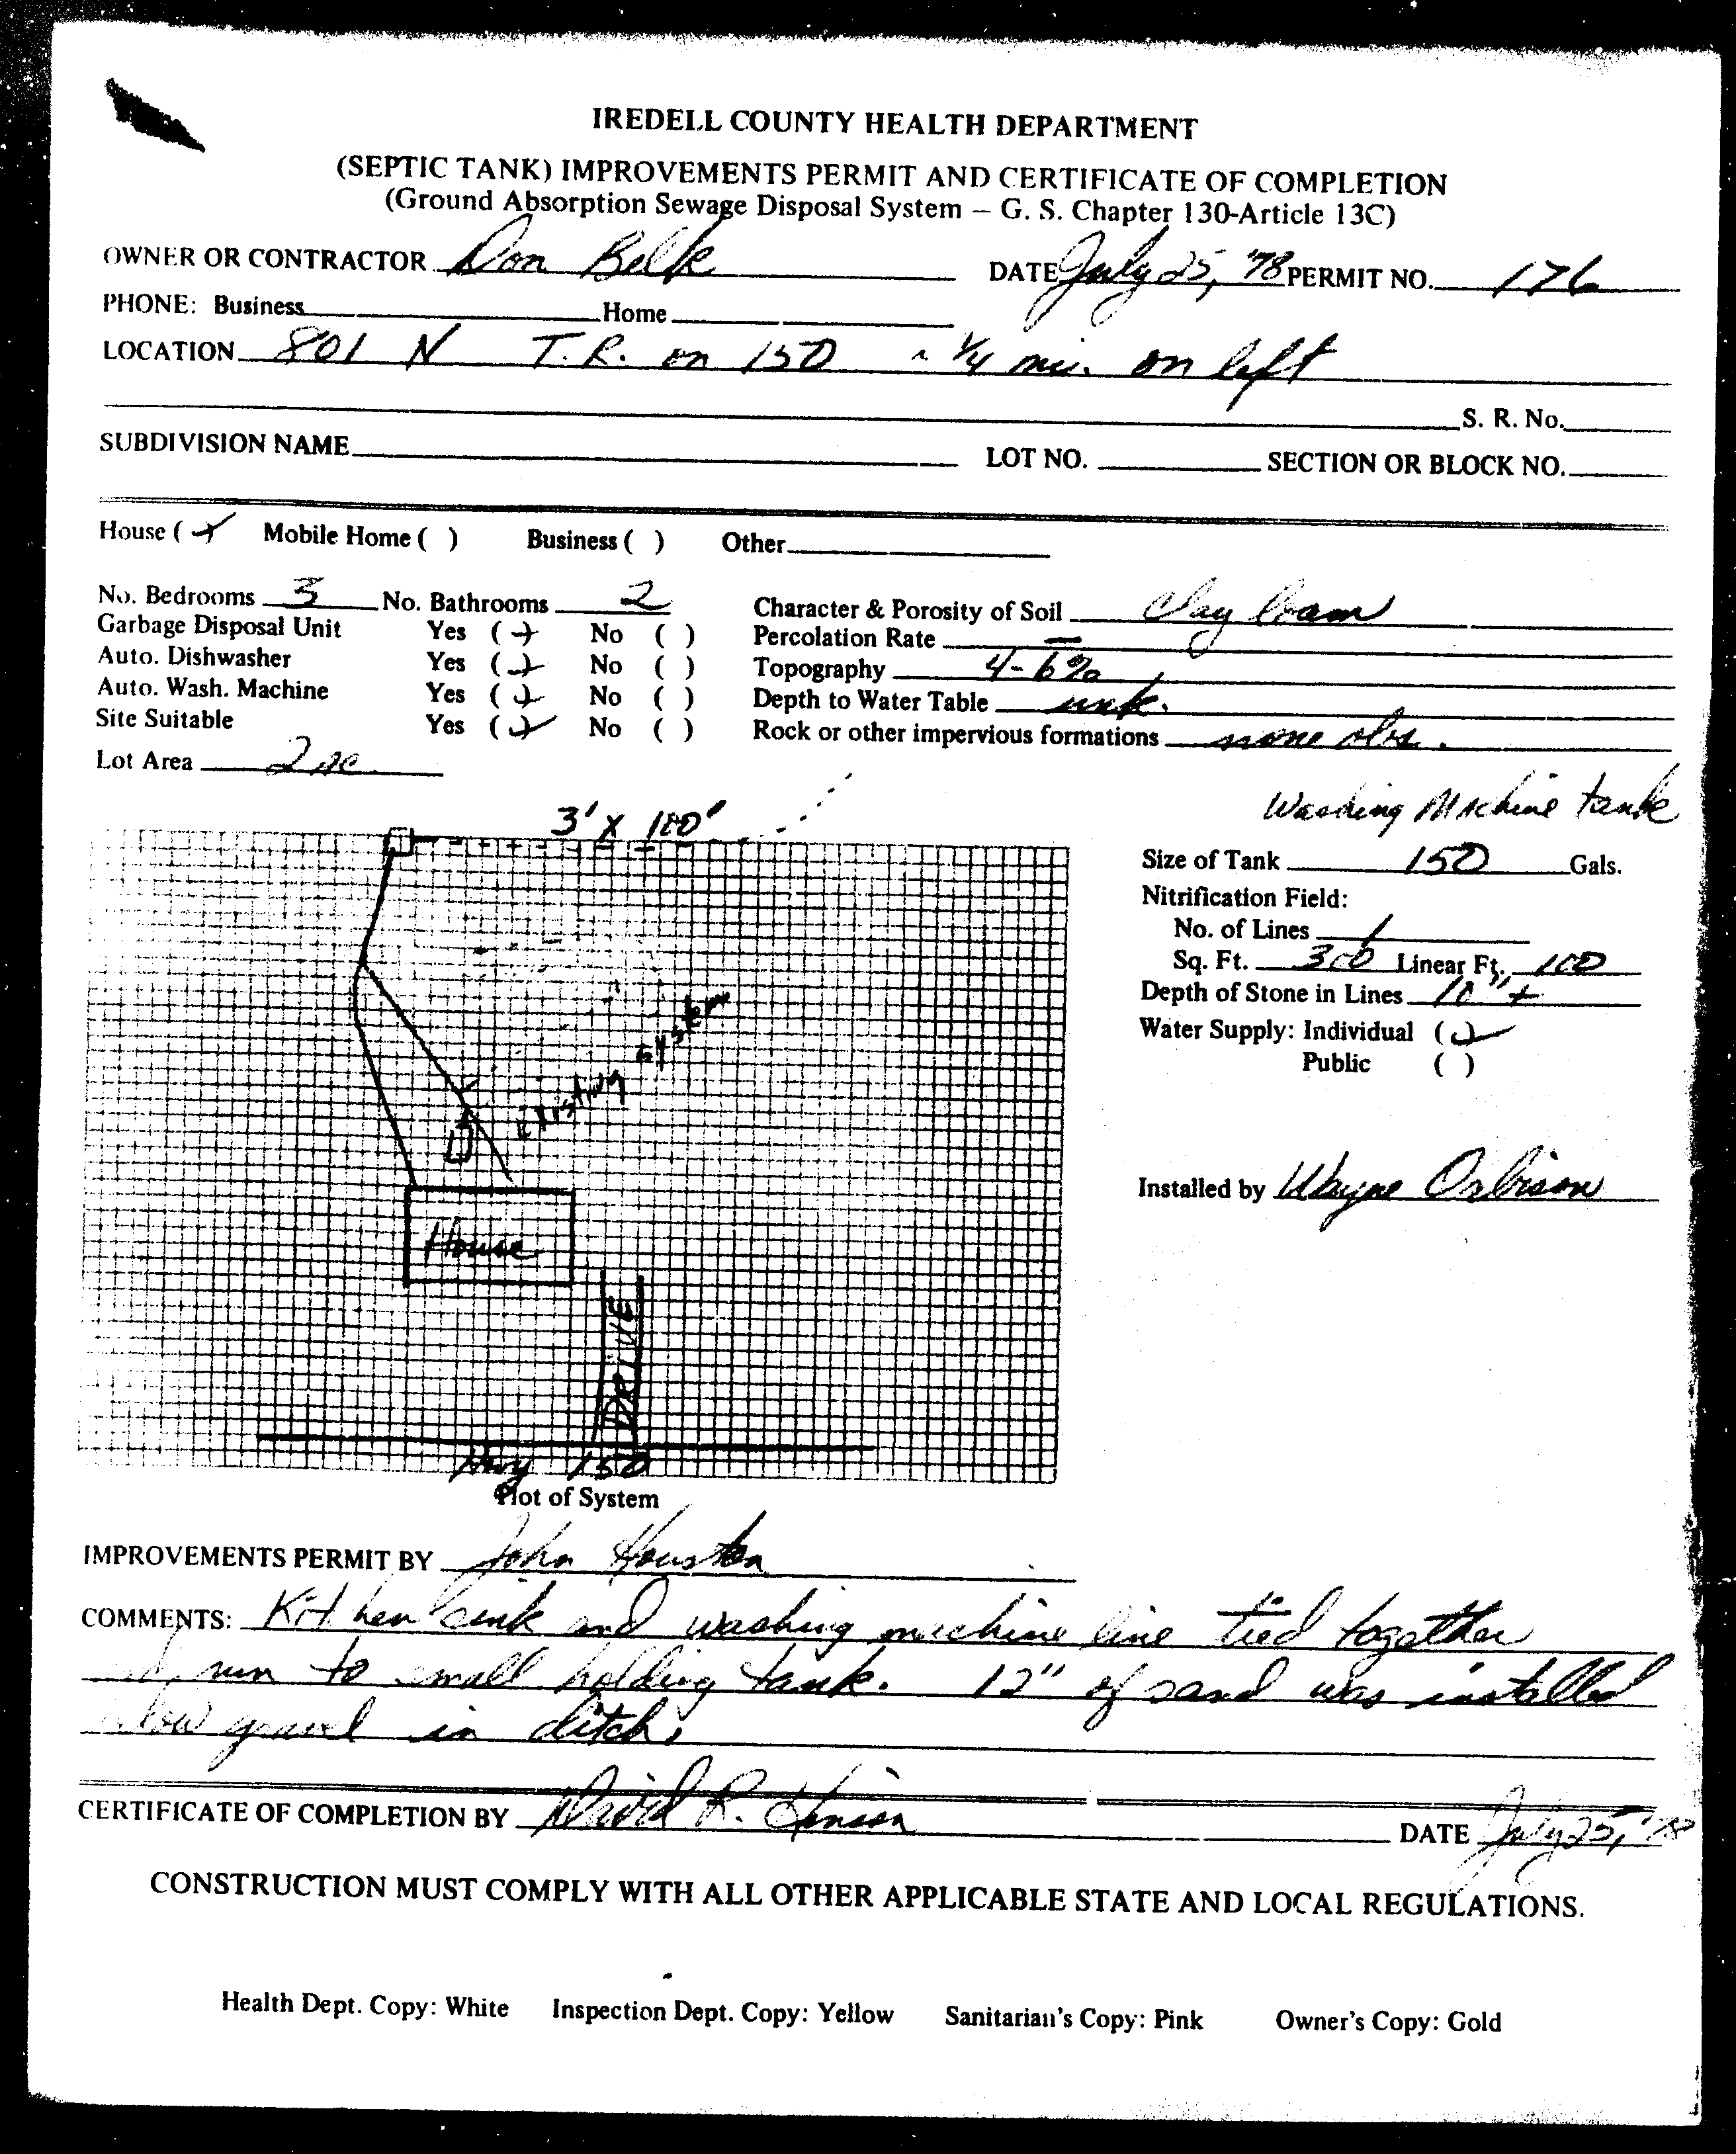 IREDELL COUNTY HEALTH DEPARTMENT
(SEPTIC TANK) IMPROVEMENTS PERMIT AND CERTIFICATE OF COMPLETION
(Ground Absorption Sewage Disposal System – G. S. Chapter 130-Article 13C)
OWNER OR CONTRACTOR Don Belk DATE July 25, '78 PERMIT NO. 176
PHONE: Business Home
LOCATION 801 N T.R. on 150 ~ 1/4 mi. on left
S. R. No.
SUBDIVISION NAME LOT NO. SECTION OR BLOCK NO.
House ( ) Mobile Home ( ) Business ( ) Other
No. Bedrooms 3 No. Bathrooms 2 Character & Porosity of Soil Clay loam
Garbage Disposal Unit Yes ( ) No ( ) Percolation Rate –
Auto. Dishwasher Yes ( ) No ( ) Topography 4-6%
Auto. Wash. Machine Yes ( ) No ( ) Depth to Water Table unk.
Site Suitable Yes ( ) No ( ) Rock or other impervious formations none obs.
Lot Area 2 ac.
Washing Machine tank
3' X 100'
Size of Tank 150 Gals.
Nitrification Field:
No. of Lines 1
Sq. Ft. 300 Linear Ft. 100
Depth of Stone in Lines 10" +
Water Supply: Individual ( )
Public ( )
Existing system
Installed by Wayne Orbison
House
DRIVE
Hwy 150
Plot of System
IMPROVEMENTS PERMIT BY John Houston
COMMENTS: Kitchen sink and washing machine line tied together
run to small holding tank. 12" of sand was installed
gravel in ditch.
CERTIFICATE OF COMPLETION BY David R. Henson DATE July 25, '78
CONSTRUCTION MUST COMPLY WITH ALL OTHER APPLICABLE STATE AND LOCAL REGULATIONS.
Health Dept. Copy: White Inspection Dept. Copy: Yellow Sanitarian's Copy: Pink Owner's Copy: Gold